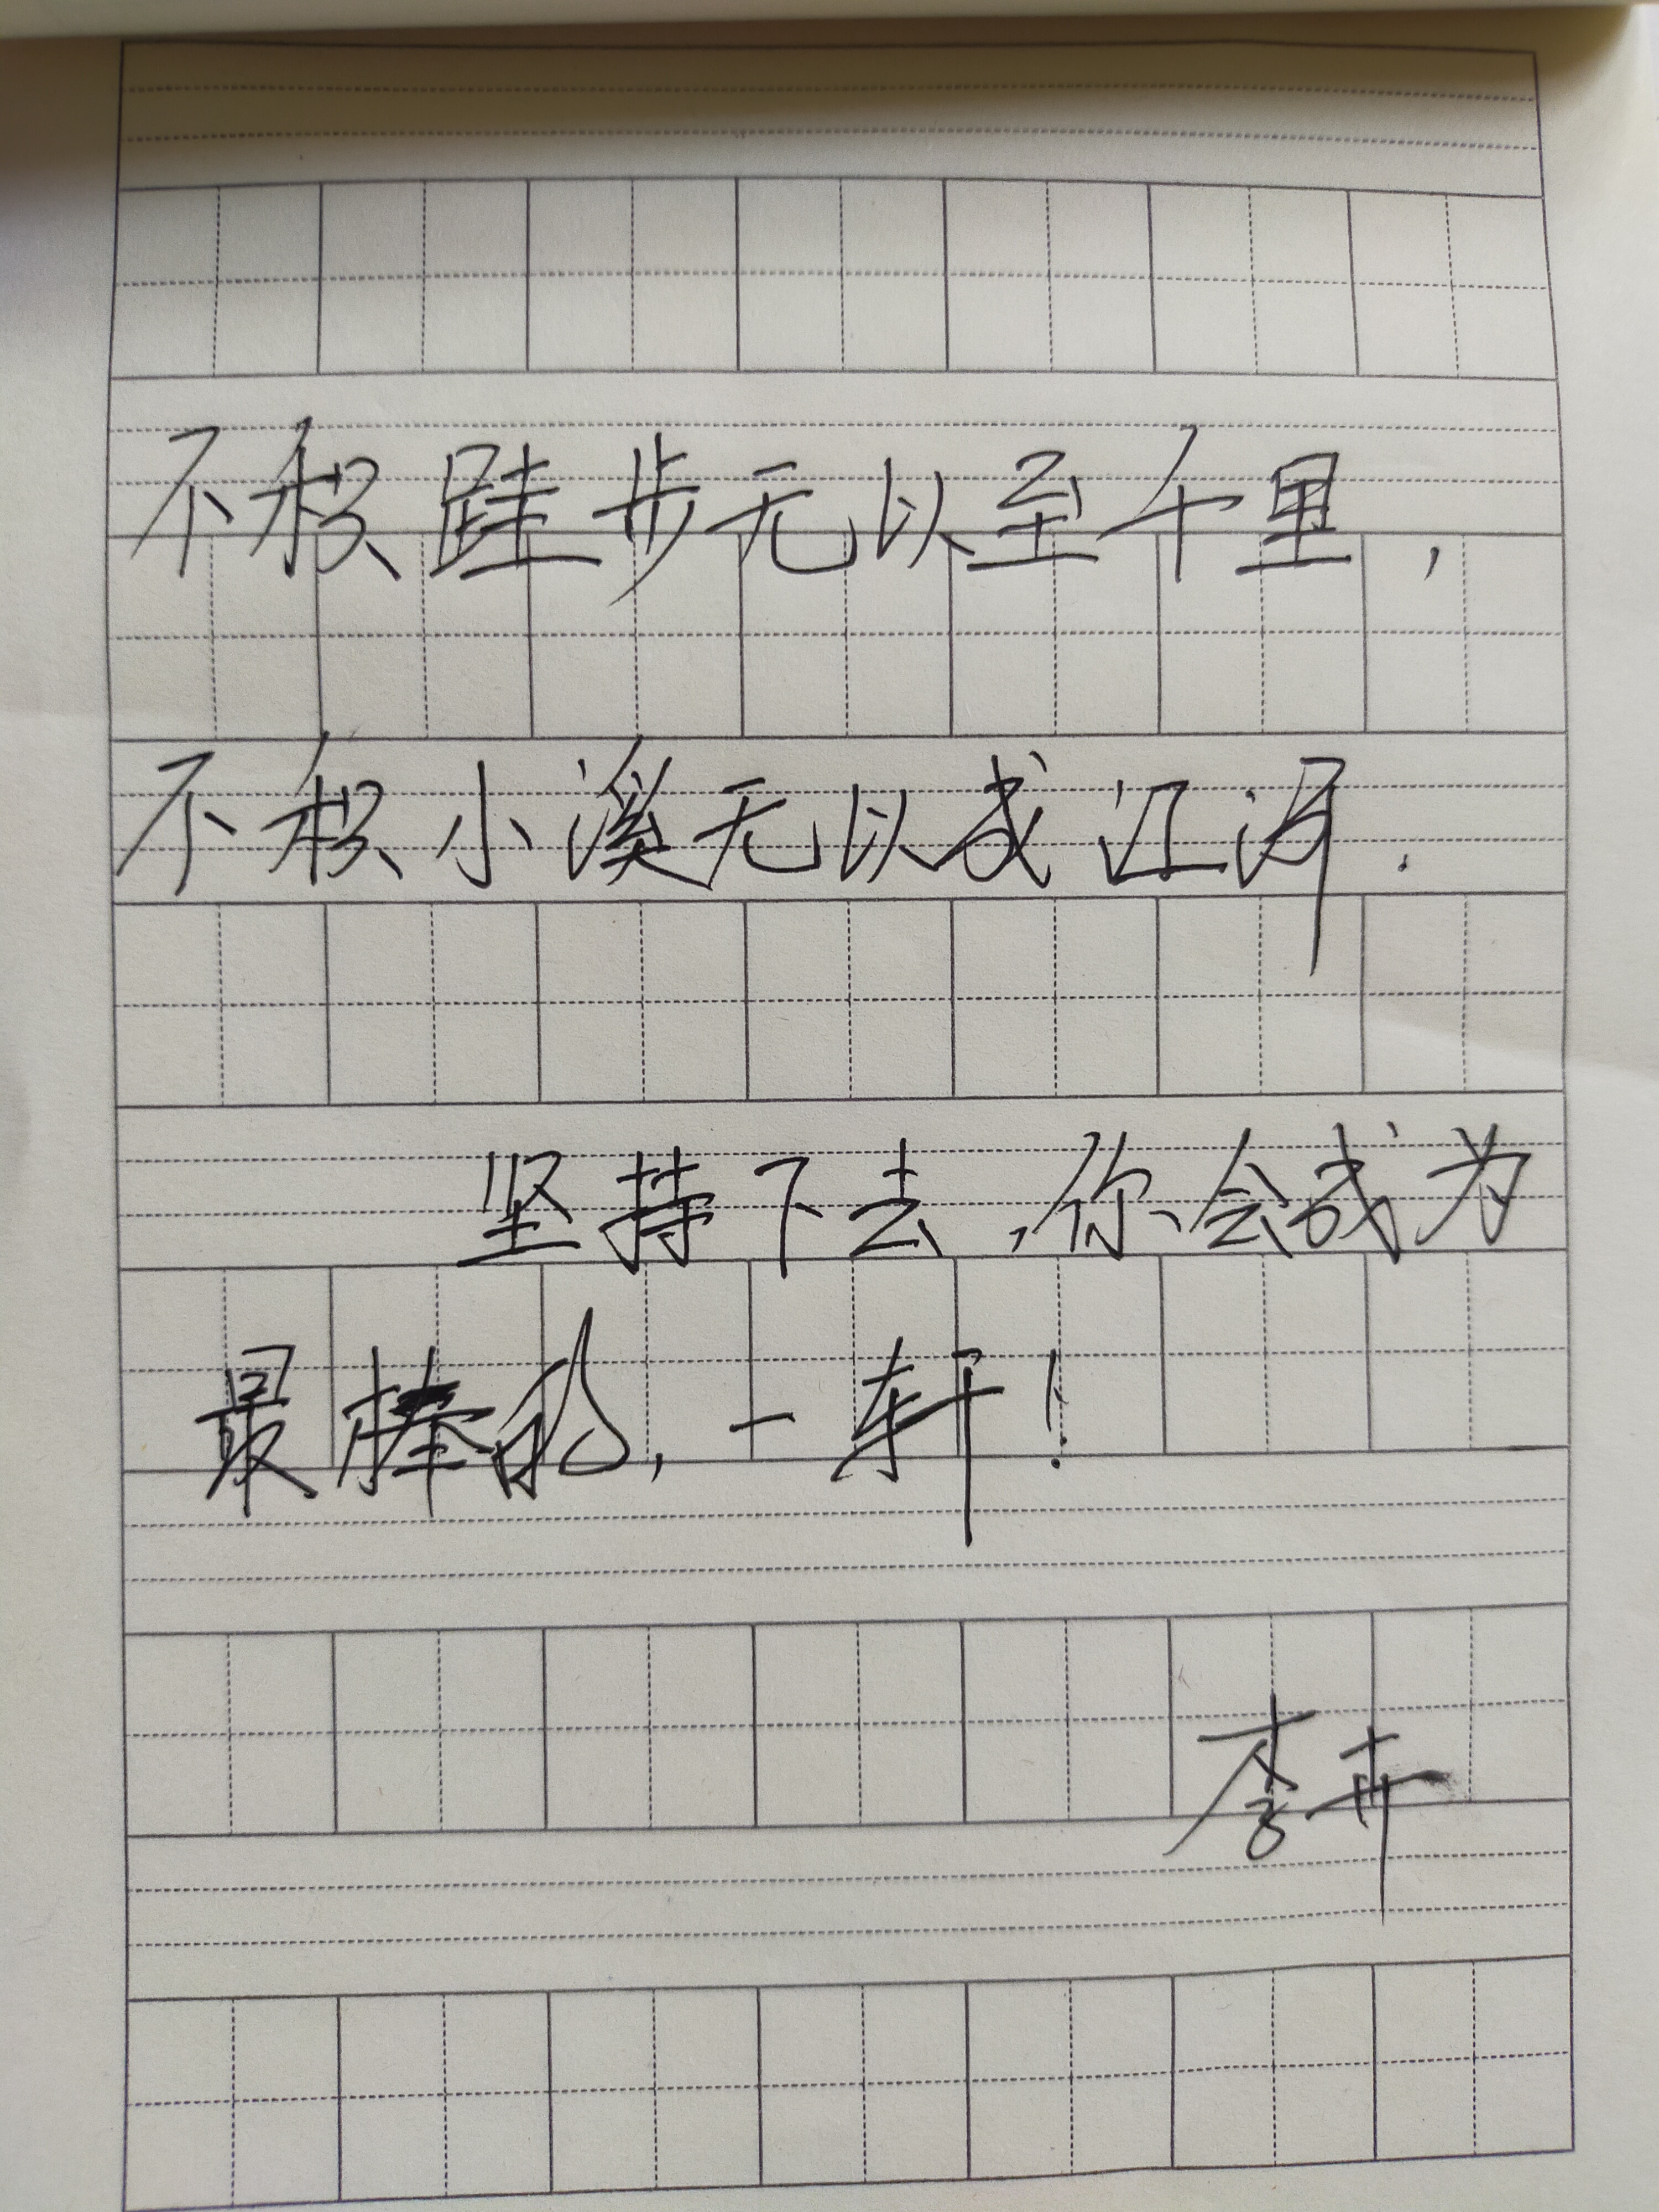 不积跬步无以至千里，
不积小溪无以成江河.
坚持下去,你会成为
最棒的,一轩!
李卉